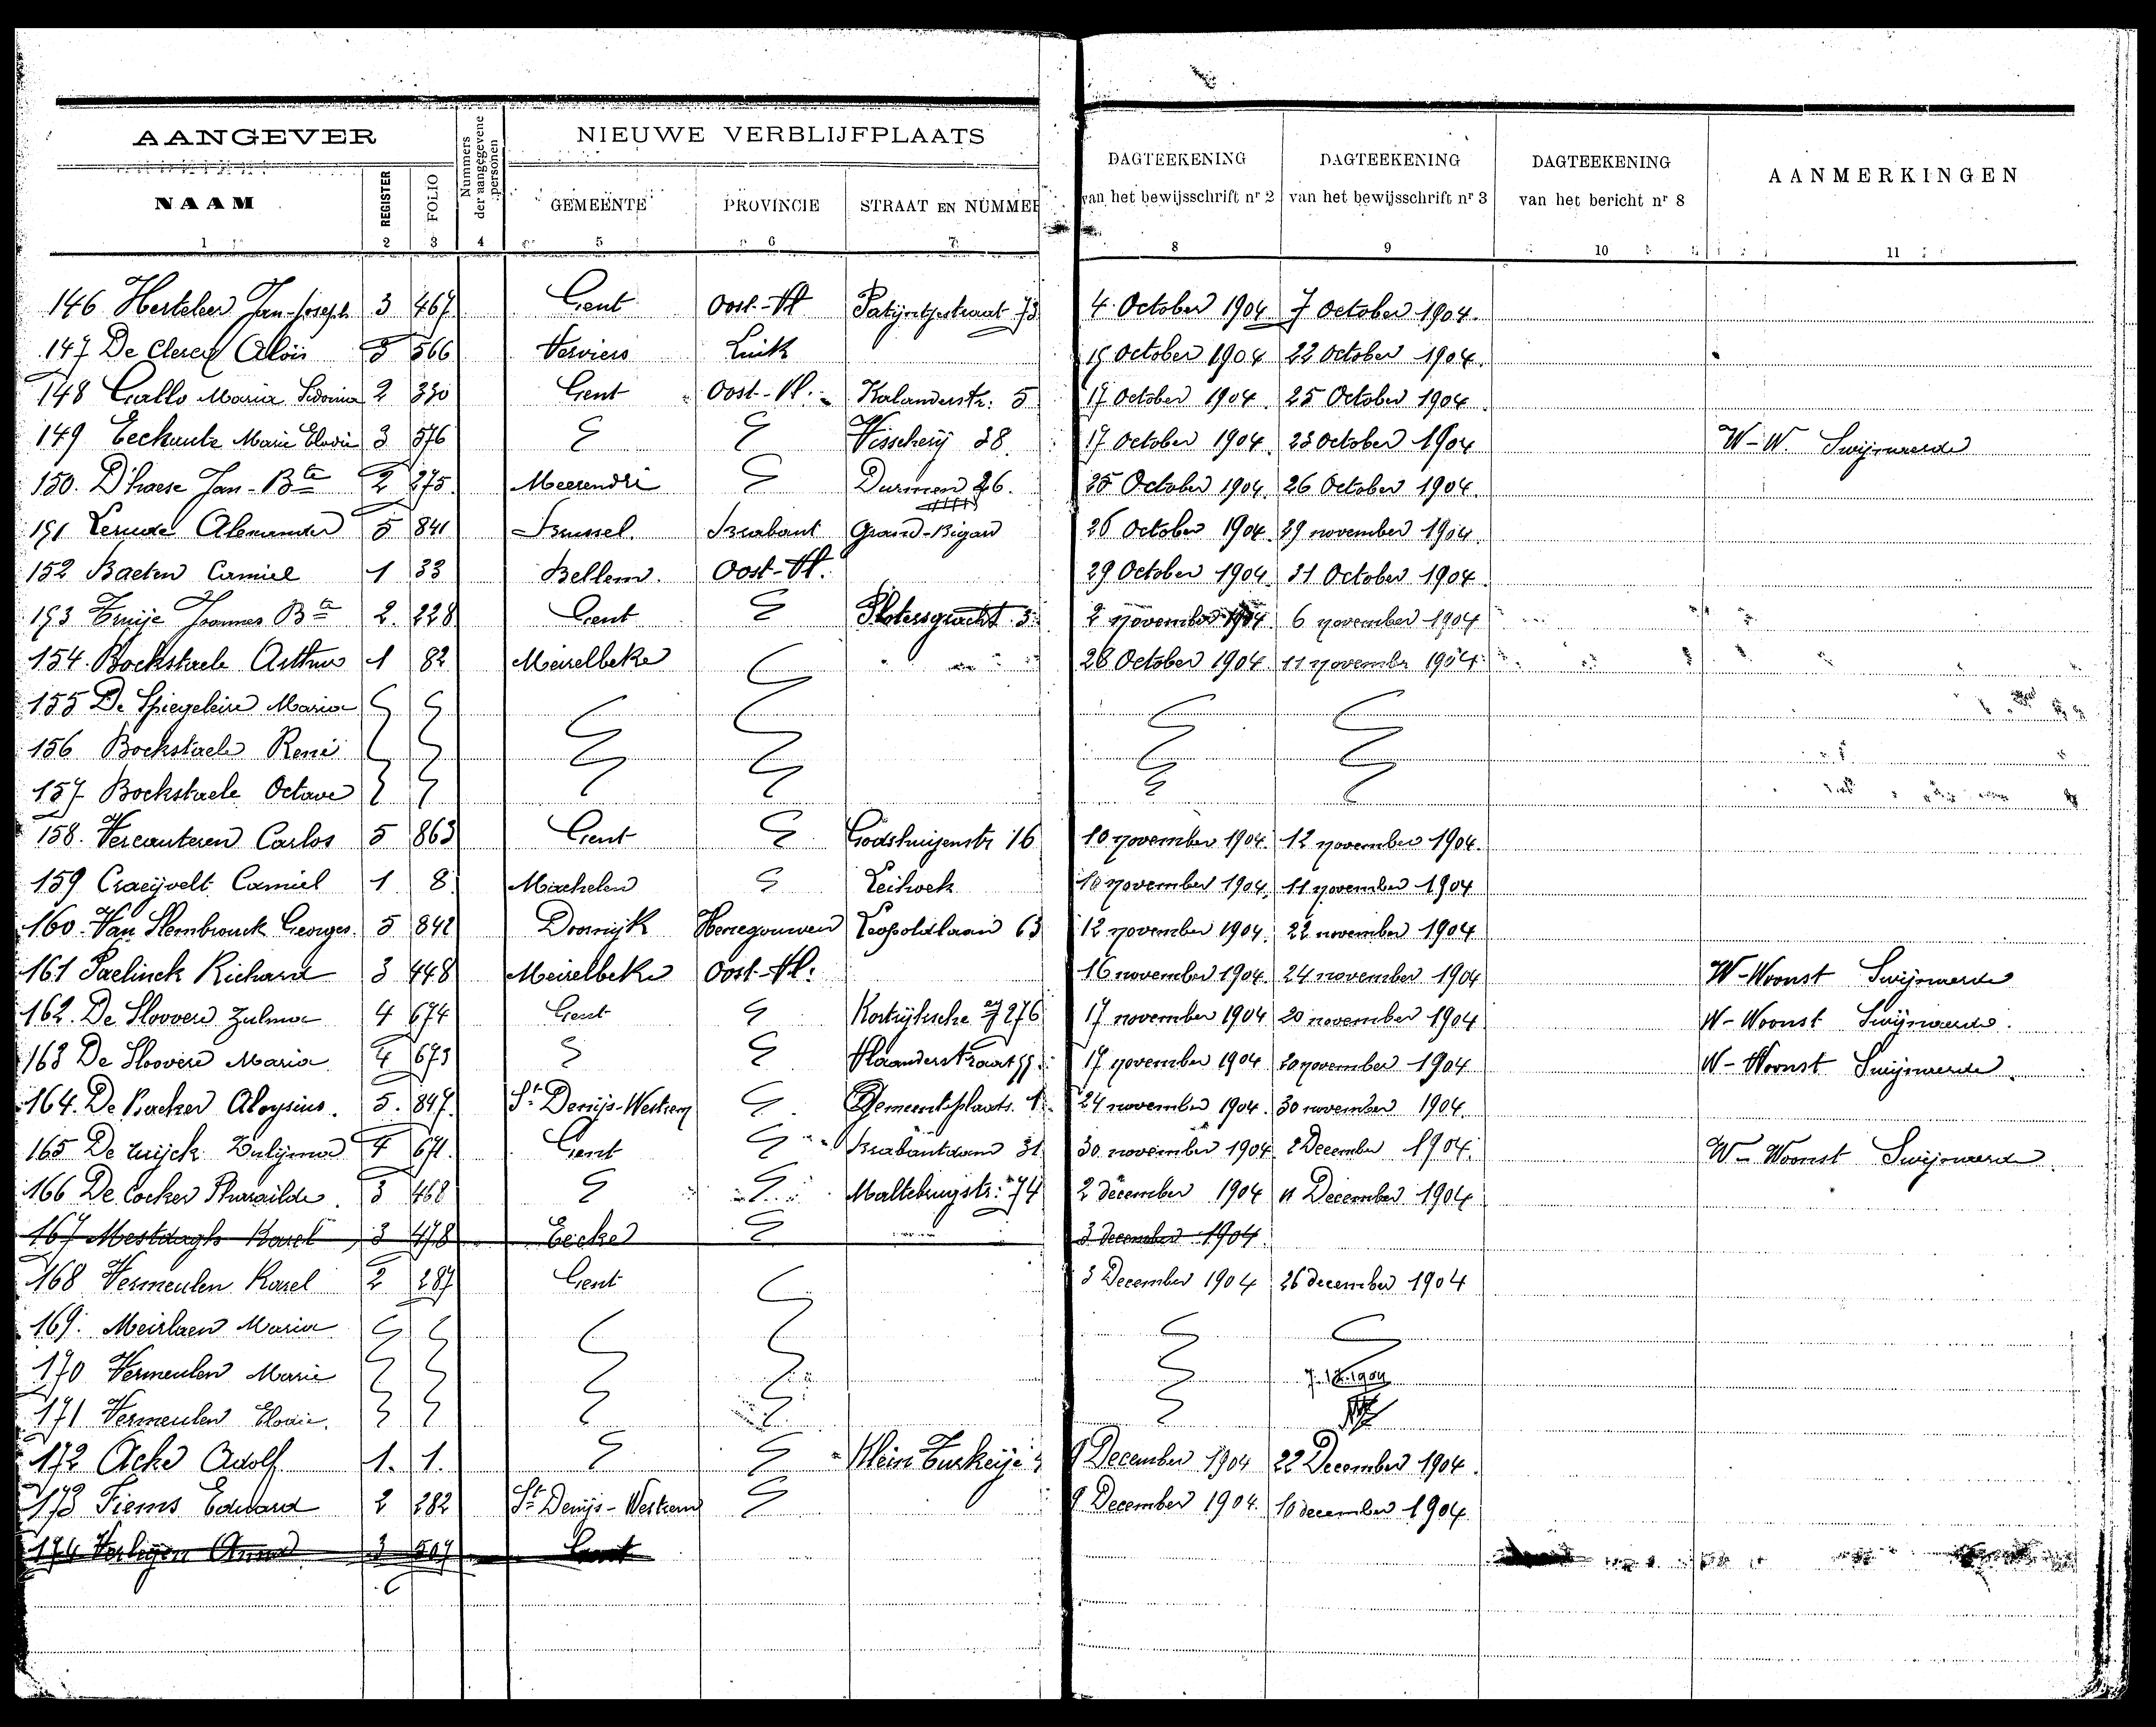 AANGEVER
Nummers der aangegevene personen
NIEUWE VERBLIJFPLAATS
DAGTEEKENING van het bewijsschrift nr 2
DAGTEEKENING van het bewijsschrift nr 3
DAGTEEKENING van het bericht nr 8
AANMERKINGEN
NAAM REGISTER FOLIO GEMEENTE PROVINCIE STRAAT EN NUMMER
1 2 3 4 5 6 7 8 9 10 11
146 Herteleer Jan-Joseph 3 467 Gent Oost-Vl Patijntjestraat 73 4 October 1904 7 October 1904.
147 De Clercq Aloïs 3 566 Verviers Luik 15 October 1904 22 October 1904.
148 Gallo Maria Sidonia 2 330 Gent Oost-Vl. Kalanderstr. 5 17 October 1904. 25 October 1904
149 Eeckaute Marie Elodie 3 576 Visscherij 38. 17 October 1904. 23 October 1904 W-W. Swijnaerde
150. D'haese Jan-Bte 2 275. Meerendré 26. 25 October 1904. 26 October 1904.
151 Alexander 5 841 Brussel. Brabant Grand-Bigard 26 October 1904. 29 november 1904.
152 Baeten Camiel 1 33 Bellem. Oost-Vl. 29 October 1904. 31 October 1904.
153 Joannes Bte 2. 228 Gent 3 2 november 1904 6 november 1904
154. Bockstaele Arthur 1 82 Meirelbeke 28 October 1904 11 november 1904
155 De Spiegeleire Maria
156 Bockstaele René
157 Bockstaele Octave
158. Vercauteren Carlos 5 863 Gent Godshuijzenstr 16 10 november 1904. 12 november 1904.
159 Craeijvelt Camiel 1 8. Machelen Leihoek 10 november 1904. 11 november 1904
160. Van Slembrouck Georges. 5 842 Doornijk Henegouwen Leopoldlaan 63 12 november 1904. 22 november 1904
161 Paelinck Richard 3 448 Meirelbeke Oost-Vl. 16 november 1904. 24 november 1904 W-Woonst Swijnaerde
162. De Sloovere Zulma 4 674 Gent Kortrijksche 276 17 november 1904 20 november 1904 W-Woonst Swijnaerde.
163 De Sloovere Maria 4 673 Vlaanderstraat 17 november 1904 20 november 1904 W-Woonst Swijnaerde.
164. De Backer Aloysius. 5. 847. St Denijs-Westrem Gemeenteplaats. 1. 24 november 1904. 30 november 1904.
165 De Zulijma 4 671. Gent Brabantdam 31 30. november 1904 2 December 1904. W-Woonst Swijnaerde.
166 De Cocker Pharaïlde. 3 468 Maltebrugstr. 74 2 december 1904 11 December 1904
167 Mestdagh Karel 3 478 Eecke 3 december 1904.
168 Vermeulen Karel 2 287 Gent 3 December 1904 26 december 1904
169. Meirlaen Maria
170 Vermeulen Marie 7.12.1904
171 Vermeulen Elodie.
172 Acke Adolf 1. 1. Klein Turkeije 9 December 1904 22 December 1904.
173 Tiems Eduard 2 282 St Denijs-Westrem 9 December 1904. 10 december 1904
174 Anna 3 507 Gent